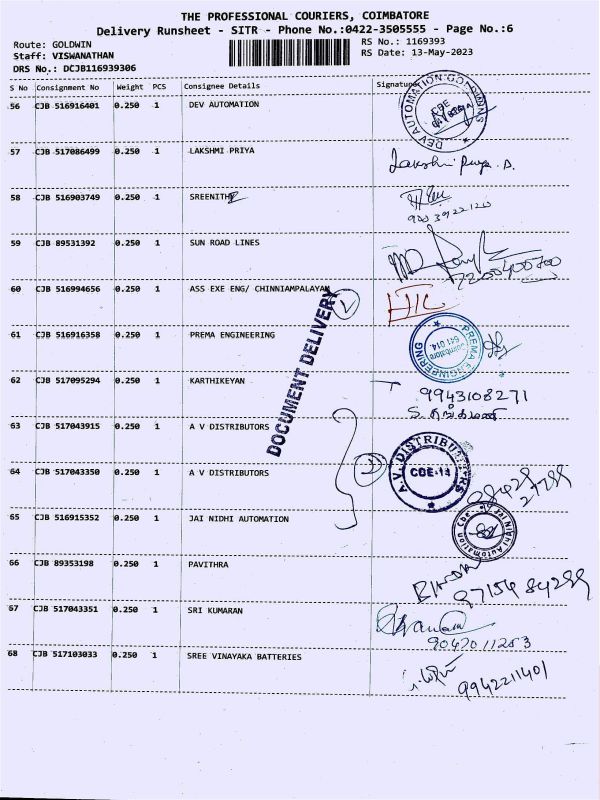 THE PROFESSIONAL COURIERS, COIMBATORE
Delivery Runsheet - SITR - Phone No.:0422-3505555 - Page No.:6
Route: GOLDWIN
Staff: VISWANATHAN
DRS No.: DCJB116939306
RS No.: 1169393
RS Date: 13-May-2023
S No Consignment No Weight PCS Consignee Details Signature
56 CJB 516916401 0.250 1 DEV AUTOMATION
DEV AUTOMATION GOLDWINS
CBE
57 CJB 517086499 0.250 1 LAKSHMI PRIYA
Lakshmi Priya. D.
58 CJB 516903749 0.250 1 SREENITH
59 CJB 89531392 0.250 1 SUN ROAD LINES
7200400700
60 CJB 516994656 0.250 1 ASS EXE ENG/ CHINNIAMPALAYAM
DOCUMENT DELIVERY
61 CJB 516916358 0.250 1 PREMA ENGINEERING
PREMA ENGINEERING
Coimbatore
641 014.
62 CJB 517095294 0.250 1 KARTHIKEYAN
9943108271
63 CJB 517043915 0.250 1 A V DISTRIBUTORS
64 CJB 517043350 0.250 1 A V DISTRIBUTORS
A.V. DISTRIBUTERS
CBE-14
65 CJB 516915352 0.250 1 JAI NIDHI AUTOMATION
Jai Nidhi Automation Cbe
66 CJB 89353198 0.250 1 PAVITHRA
9715484299
67 CJB 517043351 0.250 1 SRI KUMARAN
9047011283
68 CJB 517103033 0.250 1 SREE VINAYAKA BATTERIES
9942211401